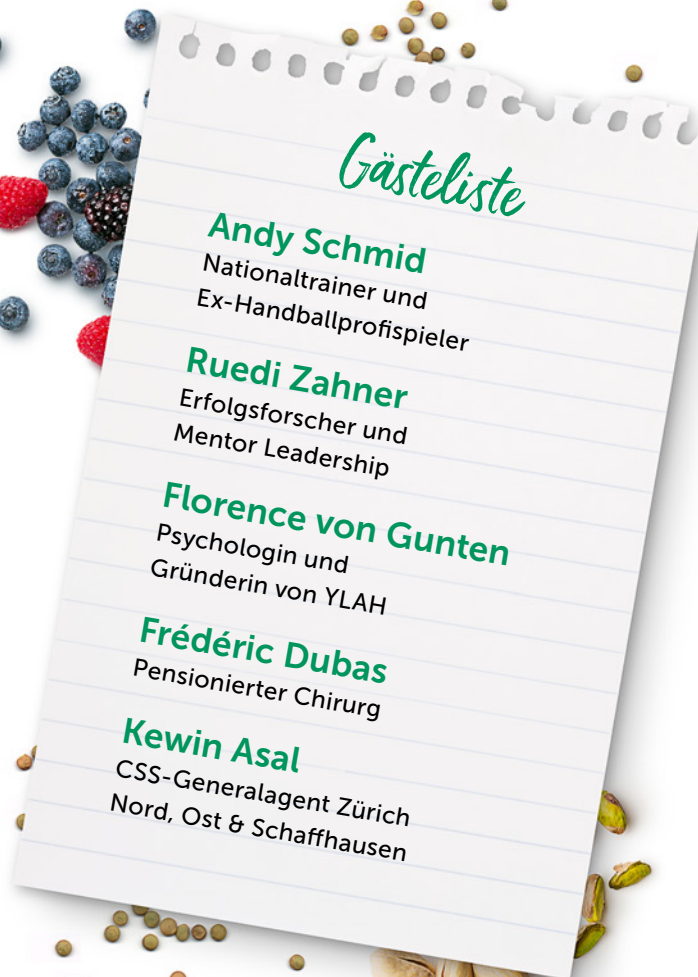 Gästeliste
Andy Schmid
Nationaltrainer und
Ex-Handballprofispieler
Ruedi Zahner
Erfolgsforscher und
Mentor Leadership
Florence von Gunten
Psychologin und
Gründerin von YLAH
Frédéric Dubas
Pensionierter Chirurg
Kewin Asal
CSS-Generalagent Zürich
Nord, Ost & Schaffhausen